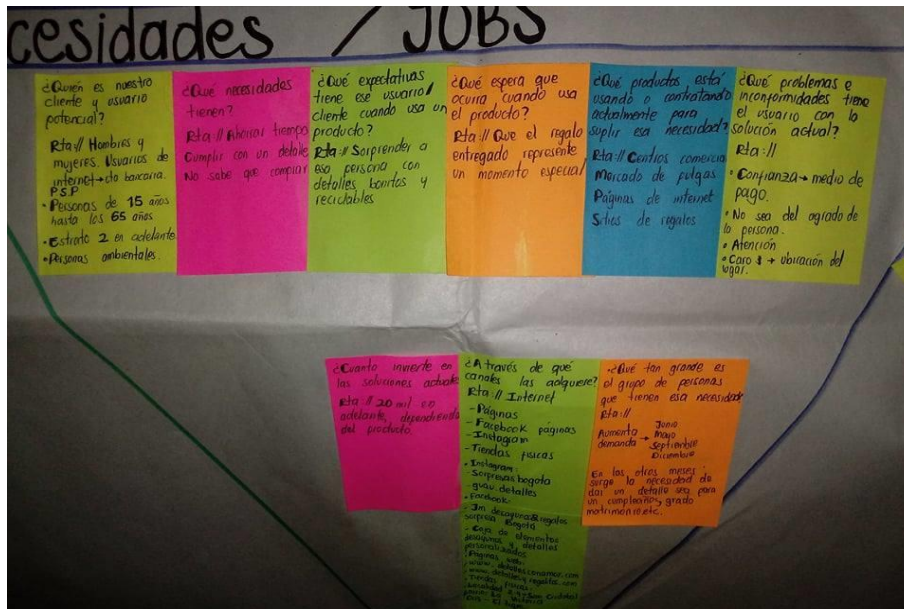 cesidades / JOBS
¿Quién es nuestro
cliente y usuario
potencial?
Rta:// Hombres y
mujeres. Usuarios de
internet→cta bancaria.
PSP
• Personas de 15 años
hasta los 65 años
• Estrato 2 en adelante
• Personas ambientales.
¿Qué necesidades
tienen?
Rta:// Ahorrar tiempo
Cumplir con un detalle
No sabe que comprar
¿Qué expectativas
tiene ese usuario/
cliente cuando usa un
producto?
Rta:// Sorprender a
esa persona con
detalles bonitos y
reciclables
¿Qué espera que
ocurra cuando usa
el producto?
Rta:// Que el regalo
entregado represente
un momento especial
¿Qué productos está
usando o contratando
actualmente para
suplir esa necesidad?
Rta:// Centros comercia
Mercado de pulgas
Páginas de internet
Sitios de regalos
¿Qué problemas e
inconformidades tiene
el usuario con la
solución actual?
Rta://
• Confianza→medio de
pago.
• No sea del agrado de
la persona.
• Atención
• Caro $ + ubicación del
lugar.
¿Cuanto invierte en
las soluciones actuales
Rta:// 20 mil en
adelante, dependiendo
del producto.
¿A través de qué
canales las adquiere?
Rta:// Internet
- Páginas
- Facebook páginas
- Instagram
- Tiendas fisicas
• Instagram:
- Sorpresas bogota
- guau.detalles
• Facebook
- Jm desayunos&regalos
sorpresa Bogotá
- Caja de elementos
desayunos y detalles
personalizados
Páginas web:
Tiendas fisicas:
¿Qué tan grande es
el grupo de personas
que tienen esa necesidad
Rta://
Aumenta demanda → Junio
Mayo
Septiembre
Diciembre
En los otros meses
surge la necesidad de
dar un detalle sea para
un cumpleaños, grado
matrimonio etc.